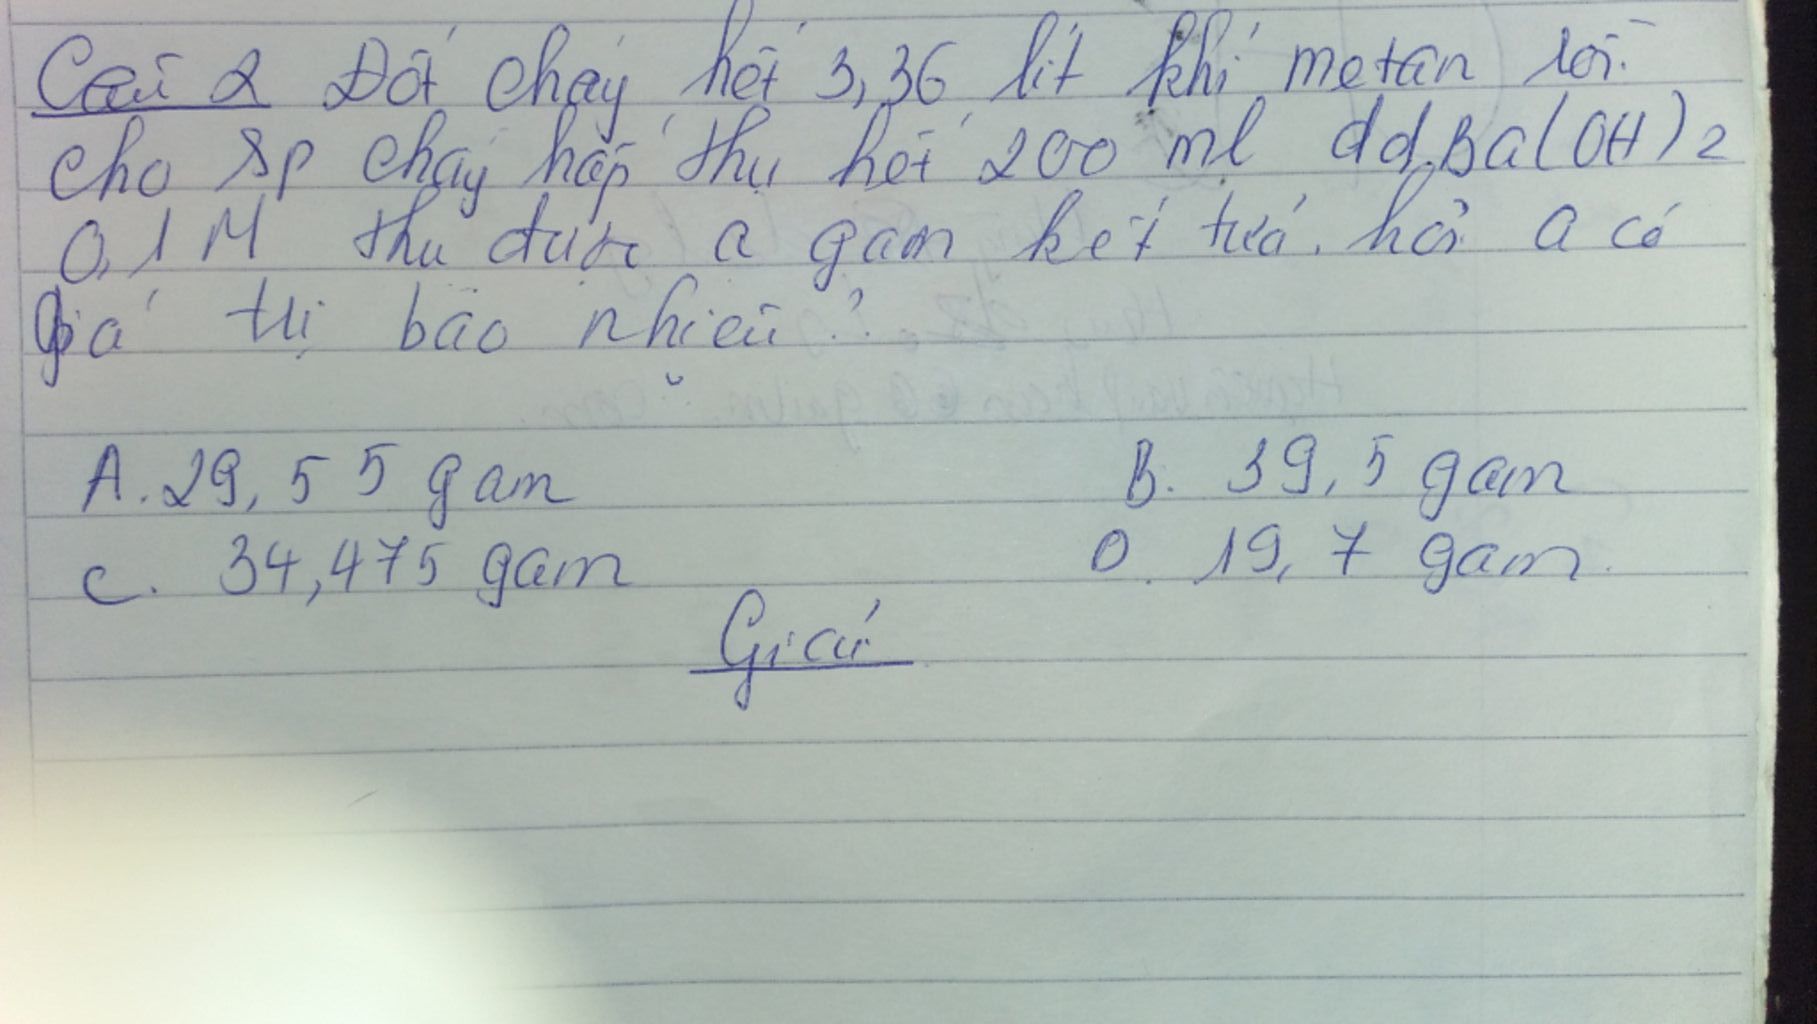 Câu 2 Đốt cháy hết 3,36 lít khí metan rồi
cho sp cháy hấp thụ hết 200 ml dd Ba(OH)2
0,1 M thu được a gam kết tủa. hỏi a có
giá trị bao nhiêu?
A. 29,55 gam B. 39,5 gam
C. 34,475 gam D. 19,7 gam.
Giải